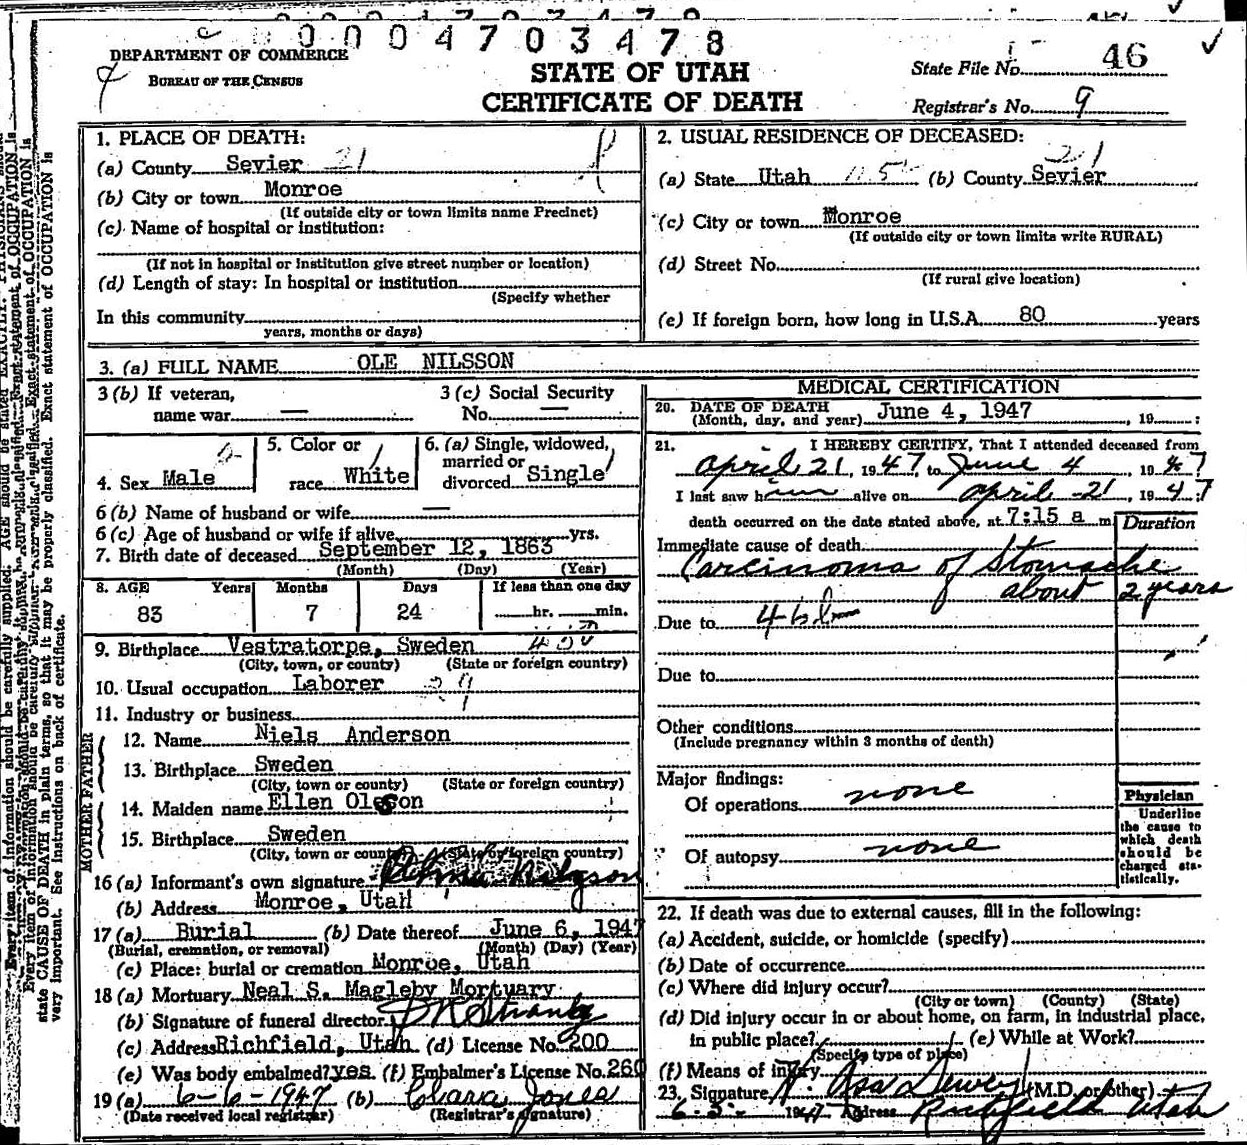 0004703478
DEPARTMENT OF COMMERCE
BUREAU OF THE CENSUS
STATE OF UTAH
CERTIFICATE OF DEATH
State File No. 46
Registrar's No. 9
1. PLACE OF DEATH:
(a) County Sevier 21
(b) City or town Monroe
(If outside city or town limits name Precinct)
(c) Name of hospital or institution:
(If not in hospital or institution give street number or location)
(d) Length of stay: In hospital or institution
(Specify whether
In this community
years, months or days)
2. USUAL RESIDENCE OF DECEASED:
(a) State Utah (b) County Sevier 21
(c) City or town Monroe
(If outside city or town limits write RURAL)
(d) Street No.
(If rural give location)
(e) If foreign born, how long in U.S.A. 80 years
3. (a) FULL NAME OLE NILSSON
3 (b) If veteran,
name war —
3 (c) Social Security
No. —
4. Sex Male
5. Color or
race White
6. (a) Single, widowed,
married or
divorced Single
6 (b) Name of husband or wife —
6 (c) Age of husband or wife if alive yrs.
7. Birth date of deceased September 12, 1863
(Month) (Day) (Year)
8. AGE Years Months Days If less than one day
83 7 24 hr. min.
9. Birthplace Vestratorpe, Sweden
(City, town, or county) (State or foreign country)
10. Usual occupation Laborer
11. Industry or business
FATHER
12. Name Niels Anderson
13. Birthplace Sweden
(City, town or county) (State or foreign country)
MOTHER
14. Maiden name Ellen Oleson
15. Birthplace Sweden
(City, town or county) (State or foreign country)
16 (a) Informant's own signature
(b) Address Monroe, Utah
17 (a) Burial (b) Date thereof June 6, 1947
(Burial, cremation, or removal) (Month) (Day) (Year)
(c) Place: burial or cremation Monroe, Utah
18 (a) Mortuary Neal S. Magleby Mortuary
(b) Signature of funeral director
(c) Address Richfield, Utah (d) License No. 200
(e) Was body embalmed? yes (f) Embalmer's License No. 260
19 (a) 6-6-1947 (b) Clara Jones
(Date received local registrar) (Registrar's signature)
MEDICAL CERTIFICATION
20. DATE OF DEATH
(Month, day, and year) June 4, 1947 , 19 :
21. I HEREBY CERTIFY, That I attended deceased from
April 21, 1947 to June 4, 1947
I last saw him alive on April -21, 1947
death occurred on the date stated above, at 7:15 a m
Duration
Immediate cause of death
Carcinoma of Stomache
about 2 years
Due to 46b
Due to
Other conditions
(Include pregnancy within 3 months of death)
Major findings:
Of operations none
Of autopsy none
Physician
Underline
the cause to
which death
should be
charged sta-
tistically.
22. If death was due to external causes, fill in the following:
(a) Accident, suicide, or homicide (specify)
(b) Date of occurrence
(c) Where did injury occur?
(City or town) (County) (State)
(d) Did injury occur in or about home, on farm, in industrial place,
in public place? (e) While at Work?
(Specify type of place)
(f) Means of injury
23. Signature Asa Dewey (M.D. or other)
1947 Address Richfield Utah
state CAUSE OF DEATH in plain terms, so that it may be properly classified. Exact statement of OCCUPATION is
very important. See instructions on back of certificate.